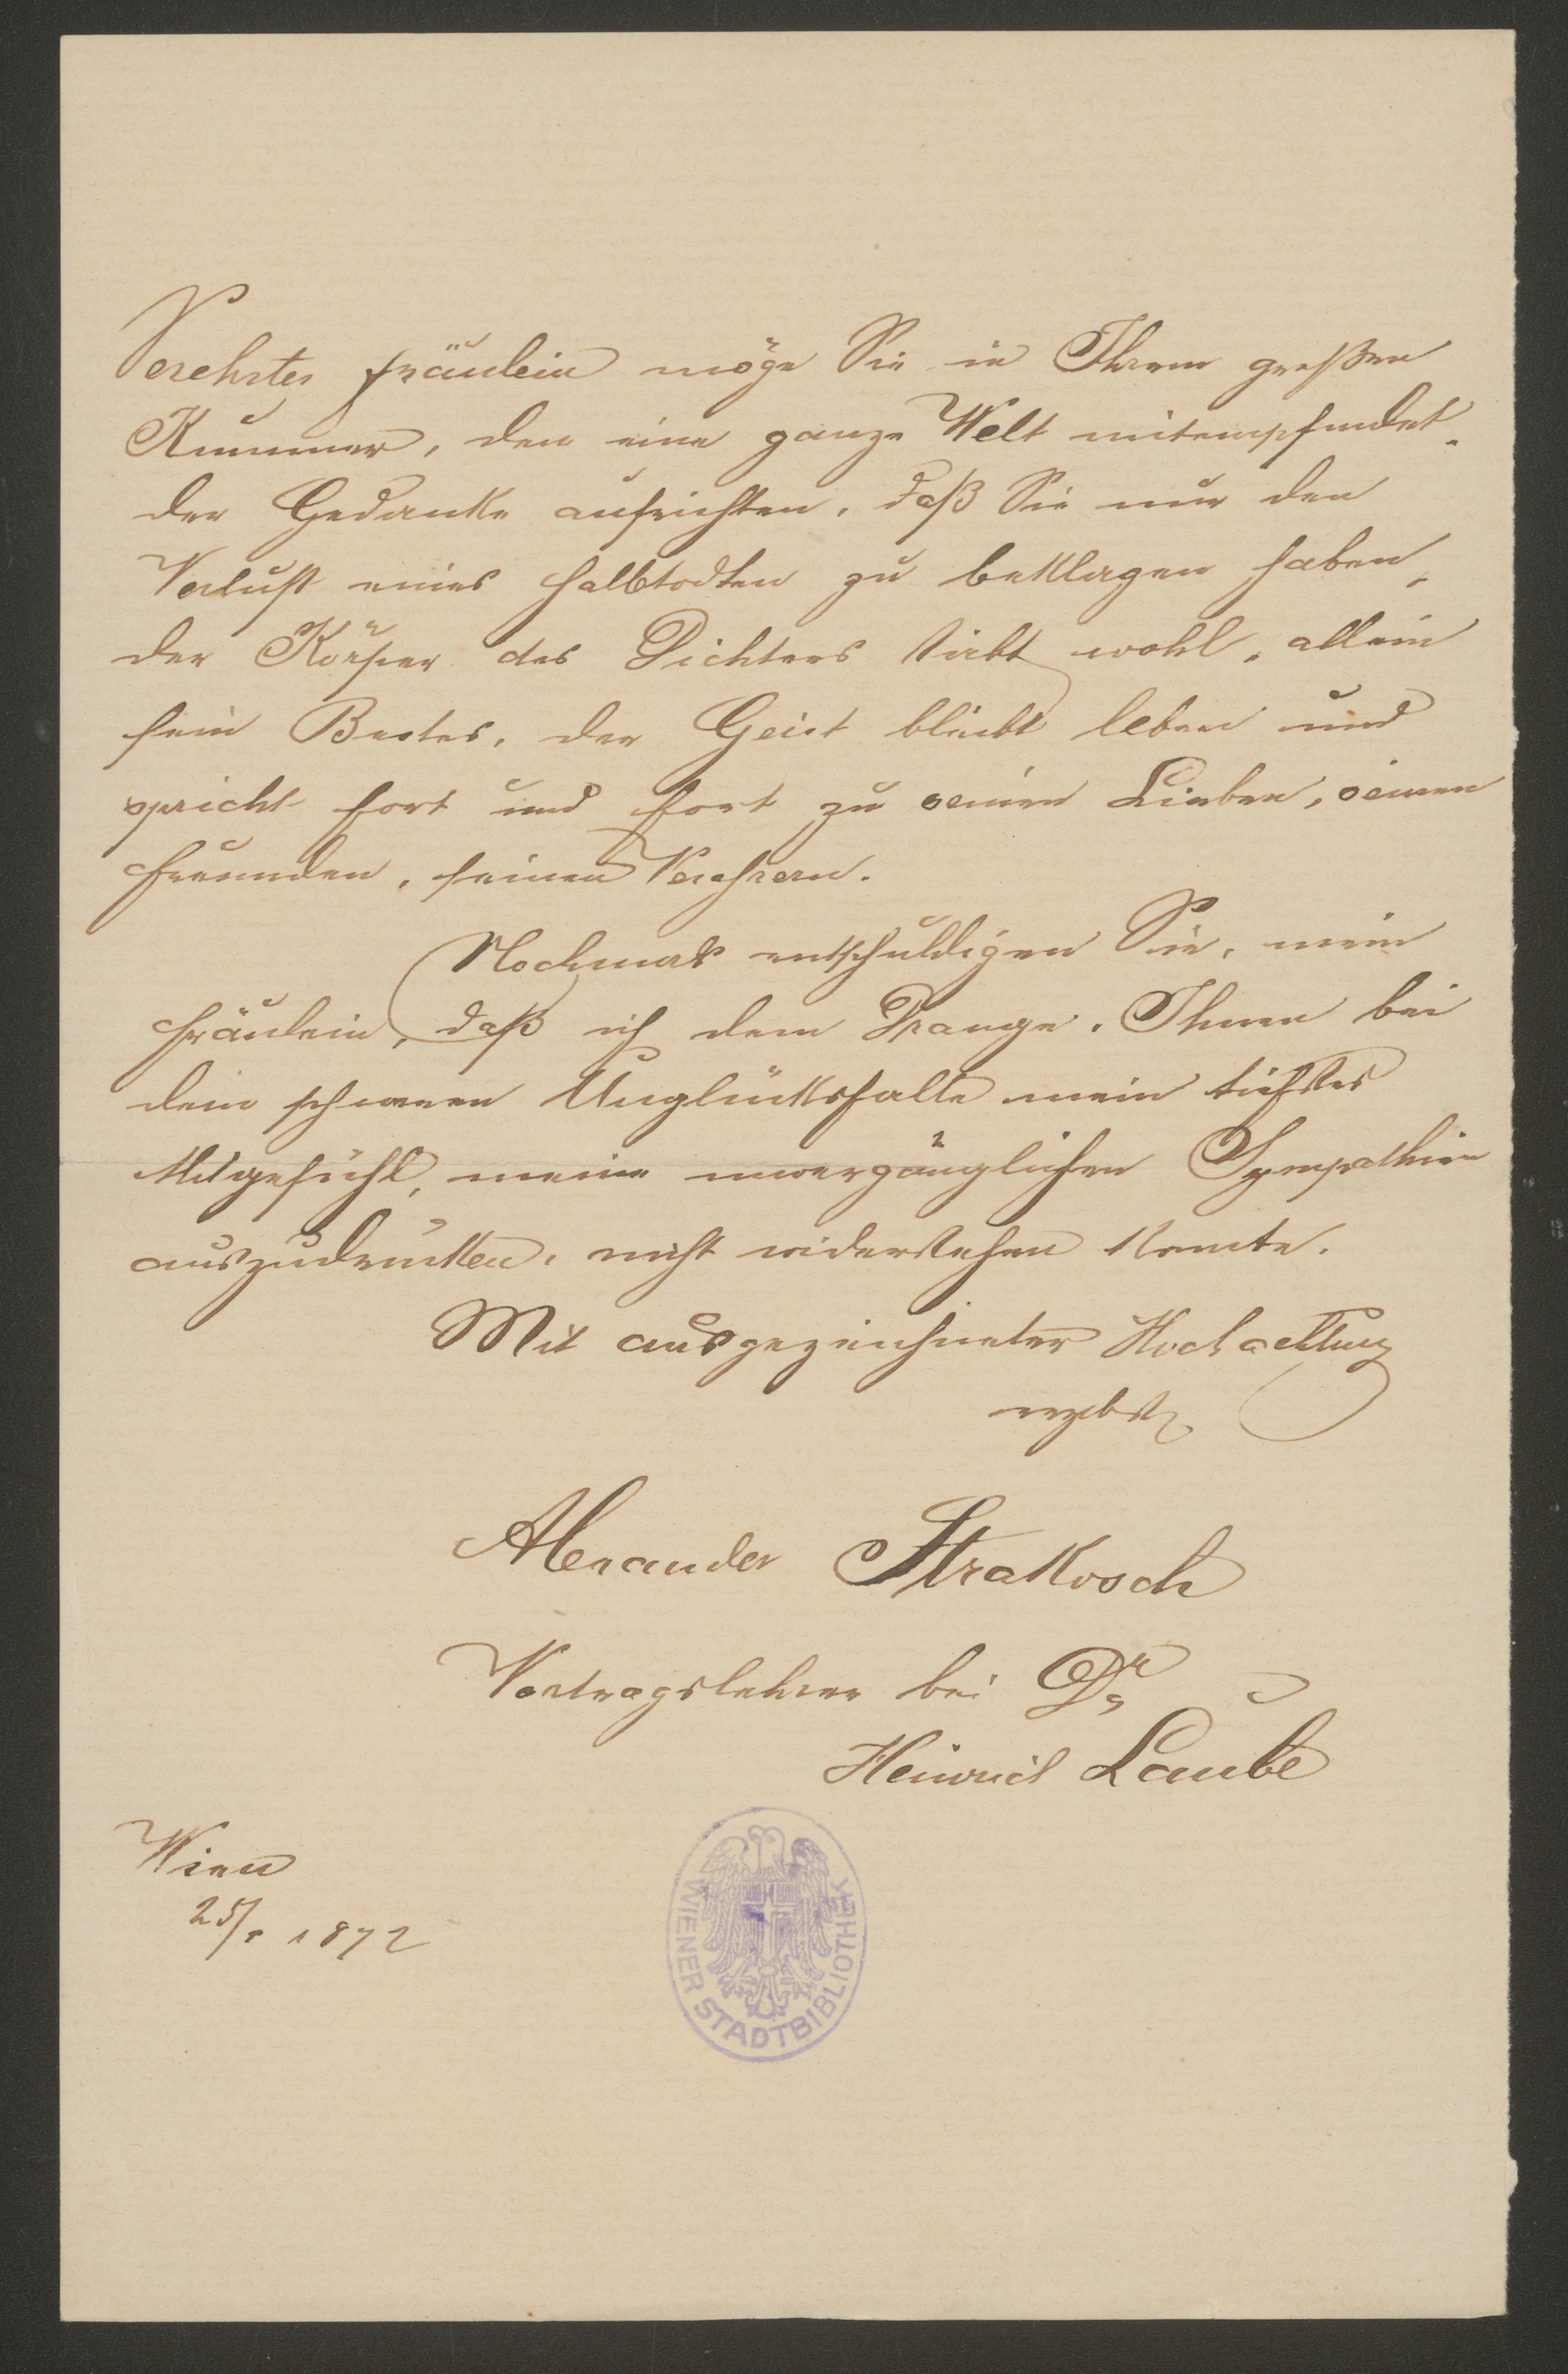 Verehrtes Fräulein möge Sie in Ihrem großen
Kummer, den eine ganze Welt mitempfindet,
der Gedanke aufrichten, daß Sie nur den
Verlust eines Halbtodten zu beklagen haben,
der Körper des Dichters stirbt wohl, allein
sein Bestes, der Geist bleibt leben und
spricht fort und fort zu seinen Lieben, seinen
Freunden, seinen Verehrern.
Nochmals entschuldigen Sie, mein
Fräulein, daß ich dem Drange, Ihnen bei
dem schweren Unglücksfalle mein tiefstes
Mitgefühl, meine unvergänglichen Sympathien
auszudrücken, nicht widerstehen konnte.
Mit ausgezeichneter Hochachtung
ergebst
Alexander Strakosch
Vortragslehrer bei Dr
Heinrich Laube
Wien
25/1 1872
WIENER STADTBIBLIOTHEK